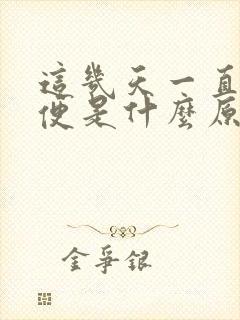 這幾天一直
便是什麼原
金爭銀